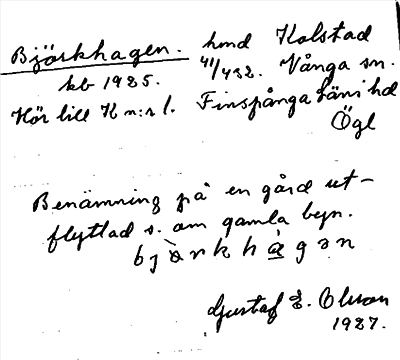 Björkhagen. hmd Kolstad
kb 1925. 41/432. Vånga sn.
Hör till K n:r 1. Finspånga läns hd
Ögl
Benämning på en gård ut-
flyttad s. om gamla byn.
bjàrkhàgən
Gustaf E. Olsson
1927.